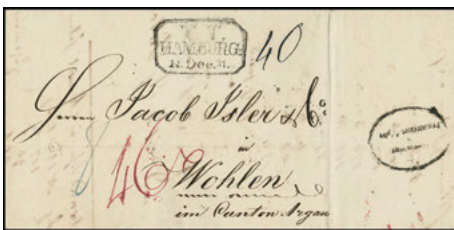 T. T.
HAMBURG
12. Dec.
40
Herrn Jacob Isler & Co
in
Wohlen
im Canton Argau